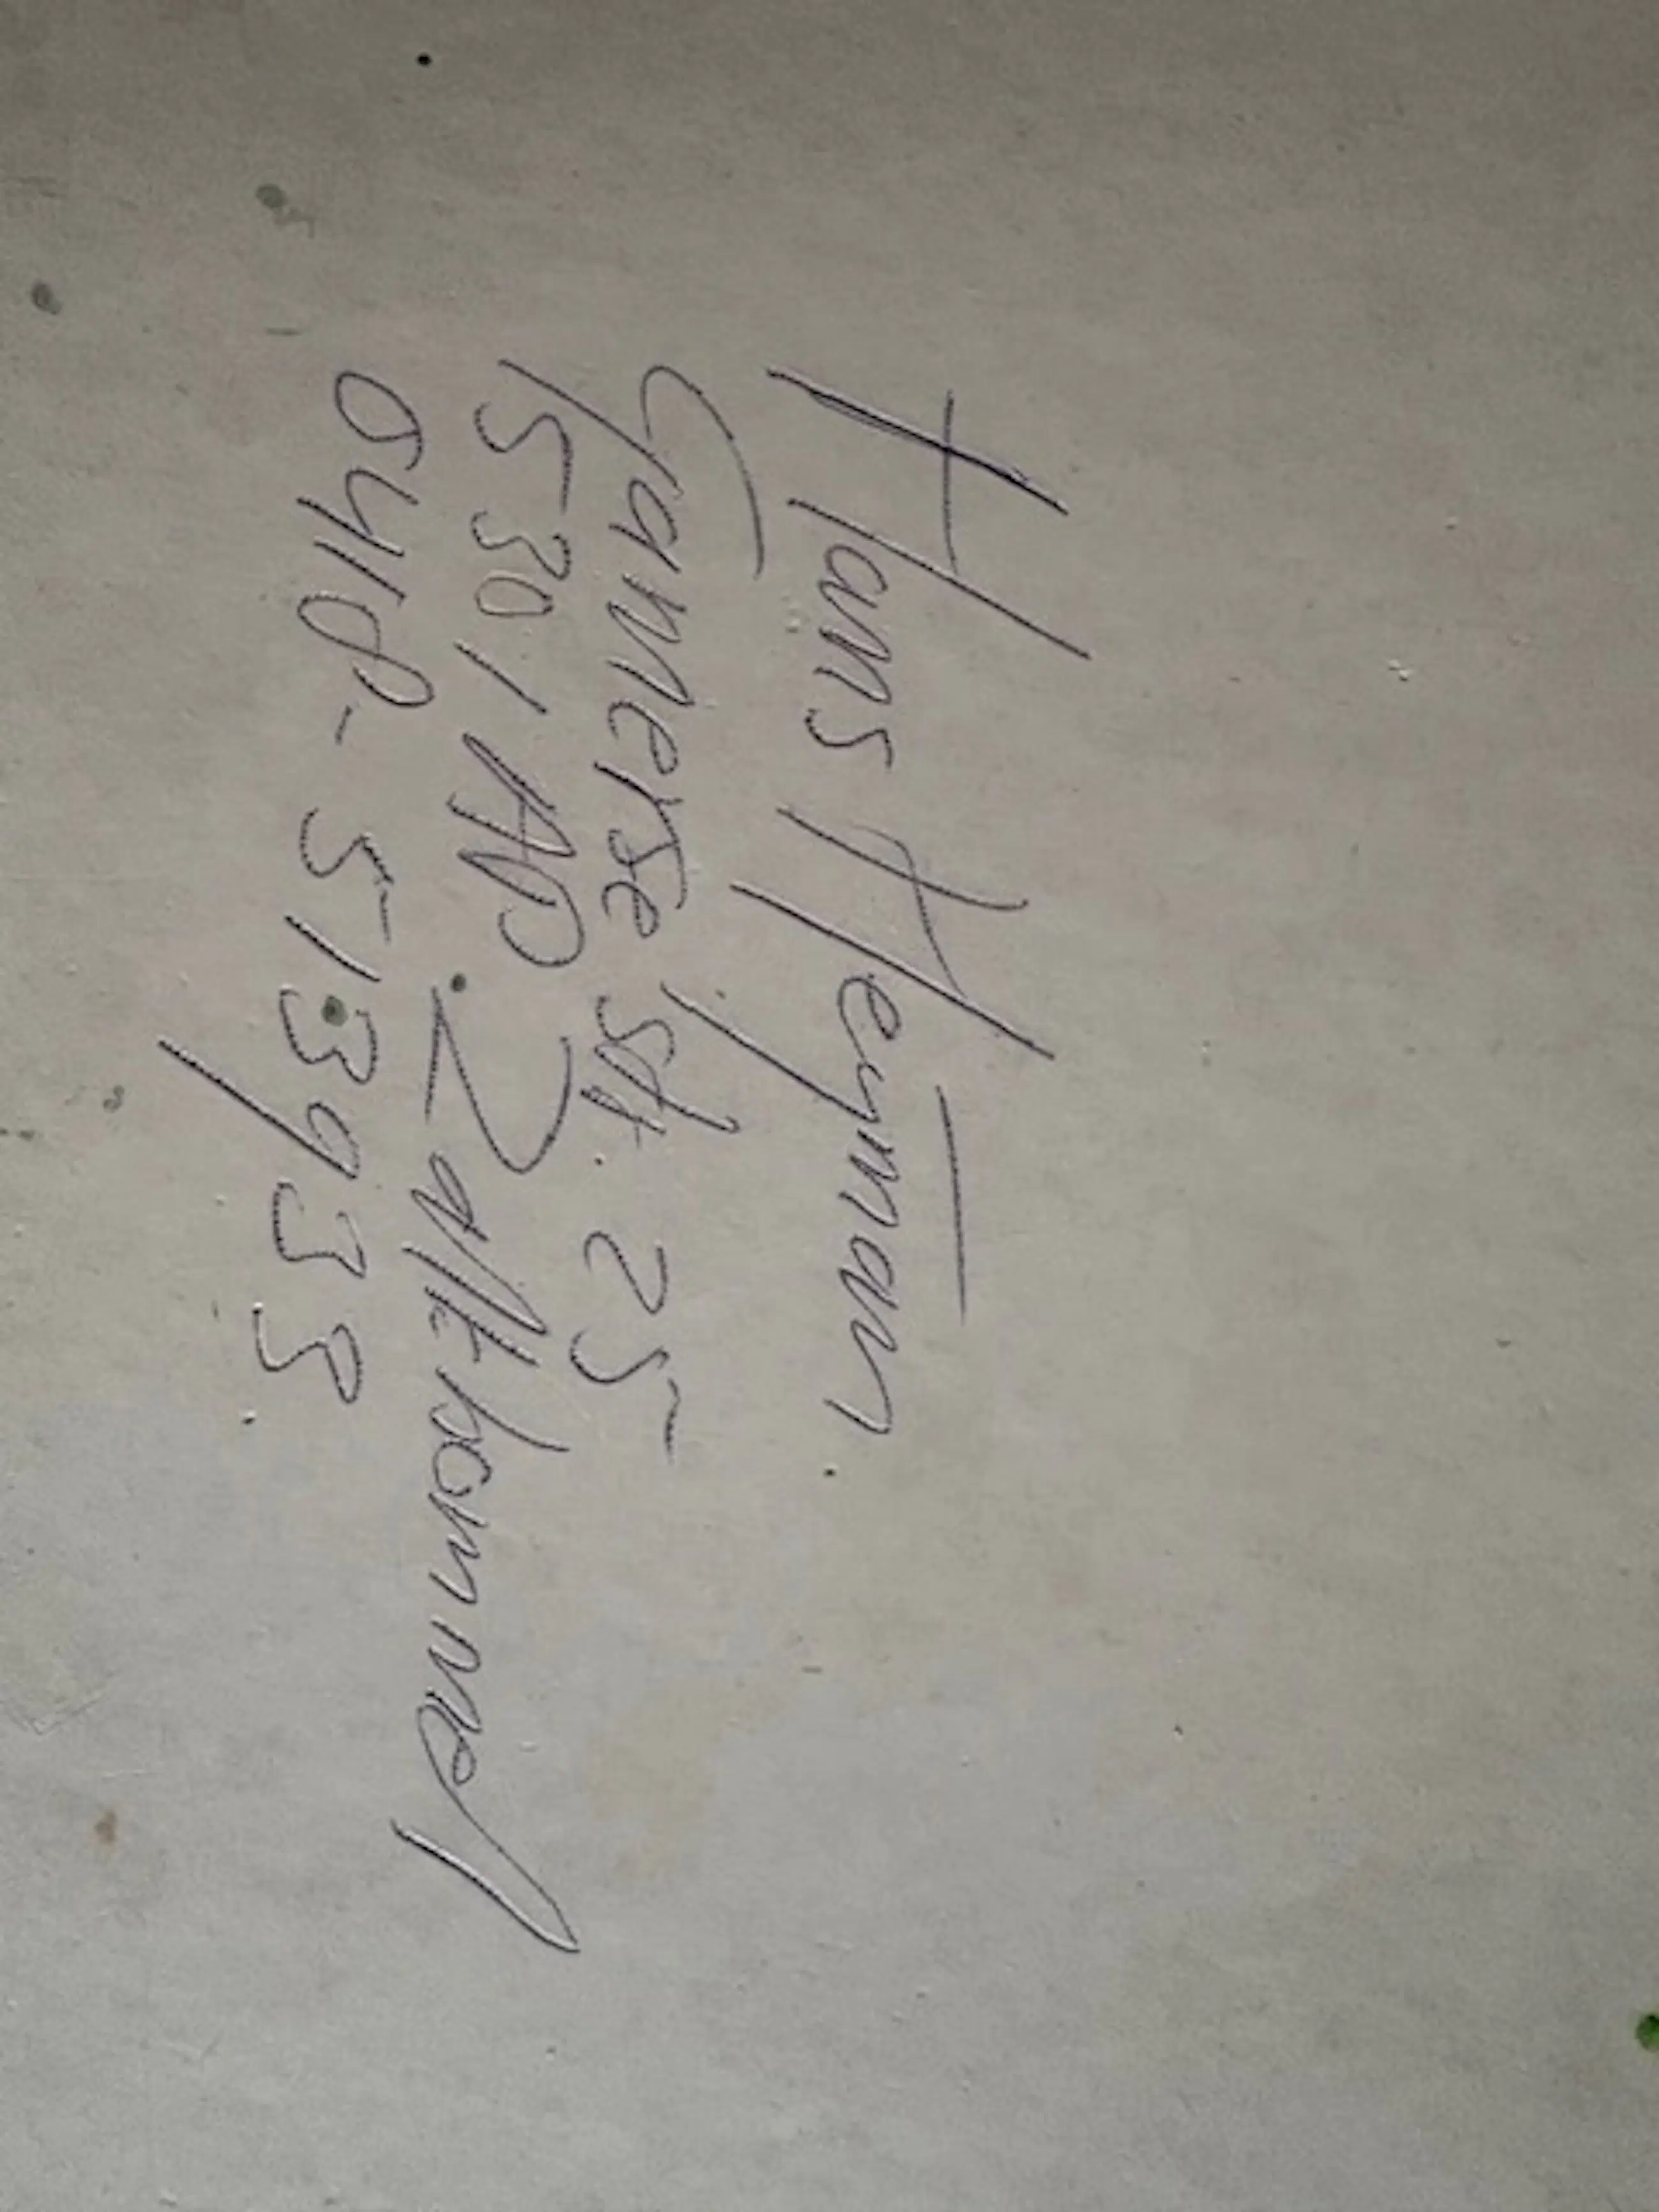 Hans Heyman
Gamerse str. 25
5301 AD. Zaltbommel
0418-513938